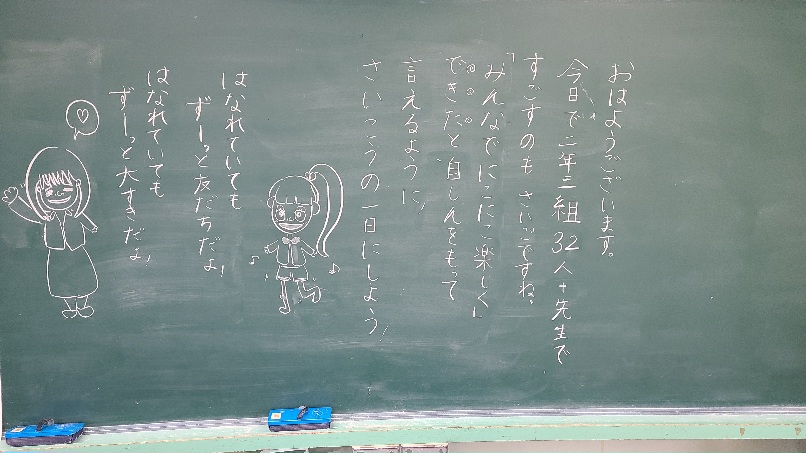 おはようございます。
今日で二年三組32人+先生で
すごすのも さいごですね。
「みんなでにこにこ楽しく」
できたと自しんをもって
言えるように、
さいっこうの一日にしよう!
はなれていても
ずーっと友だちだよ!
はなれていても
ずーっと大すきだよ!